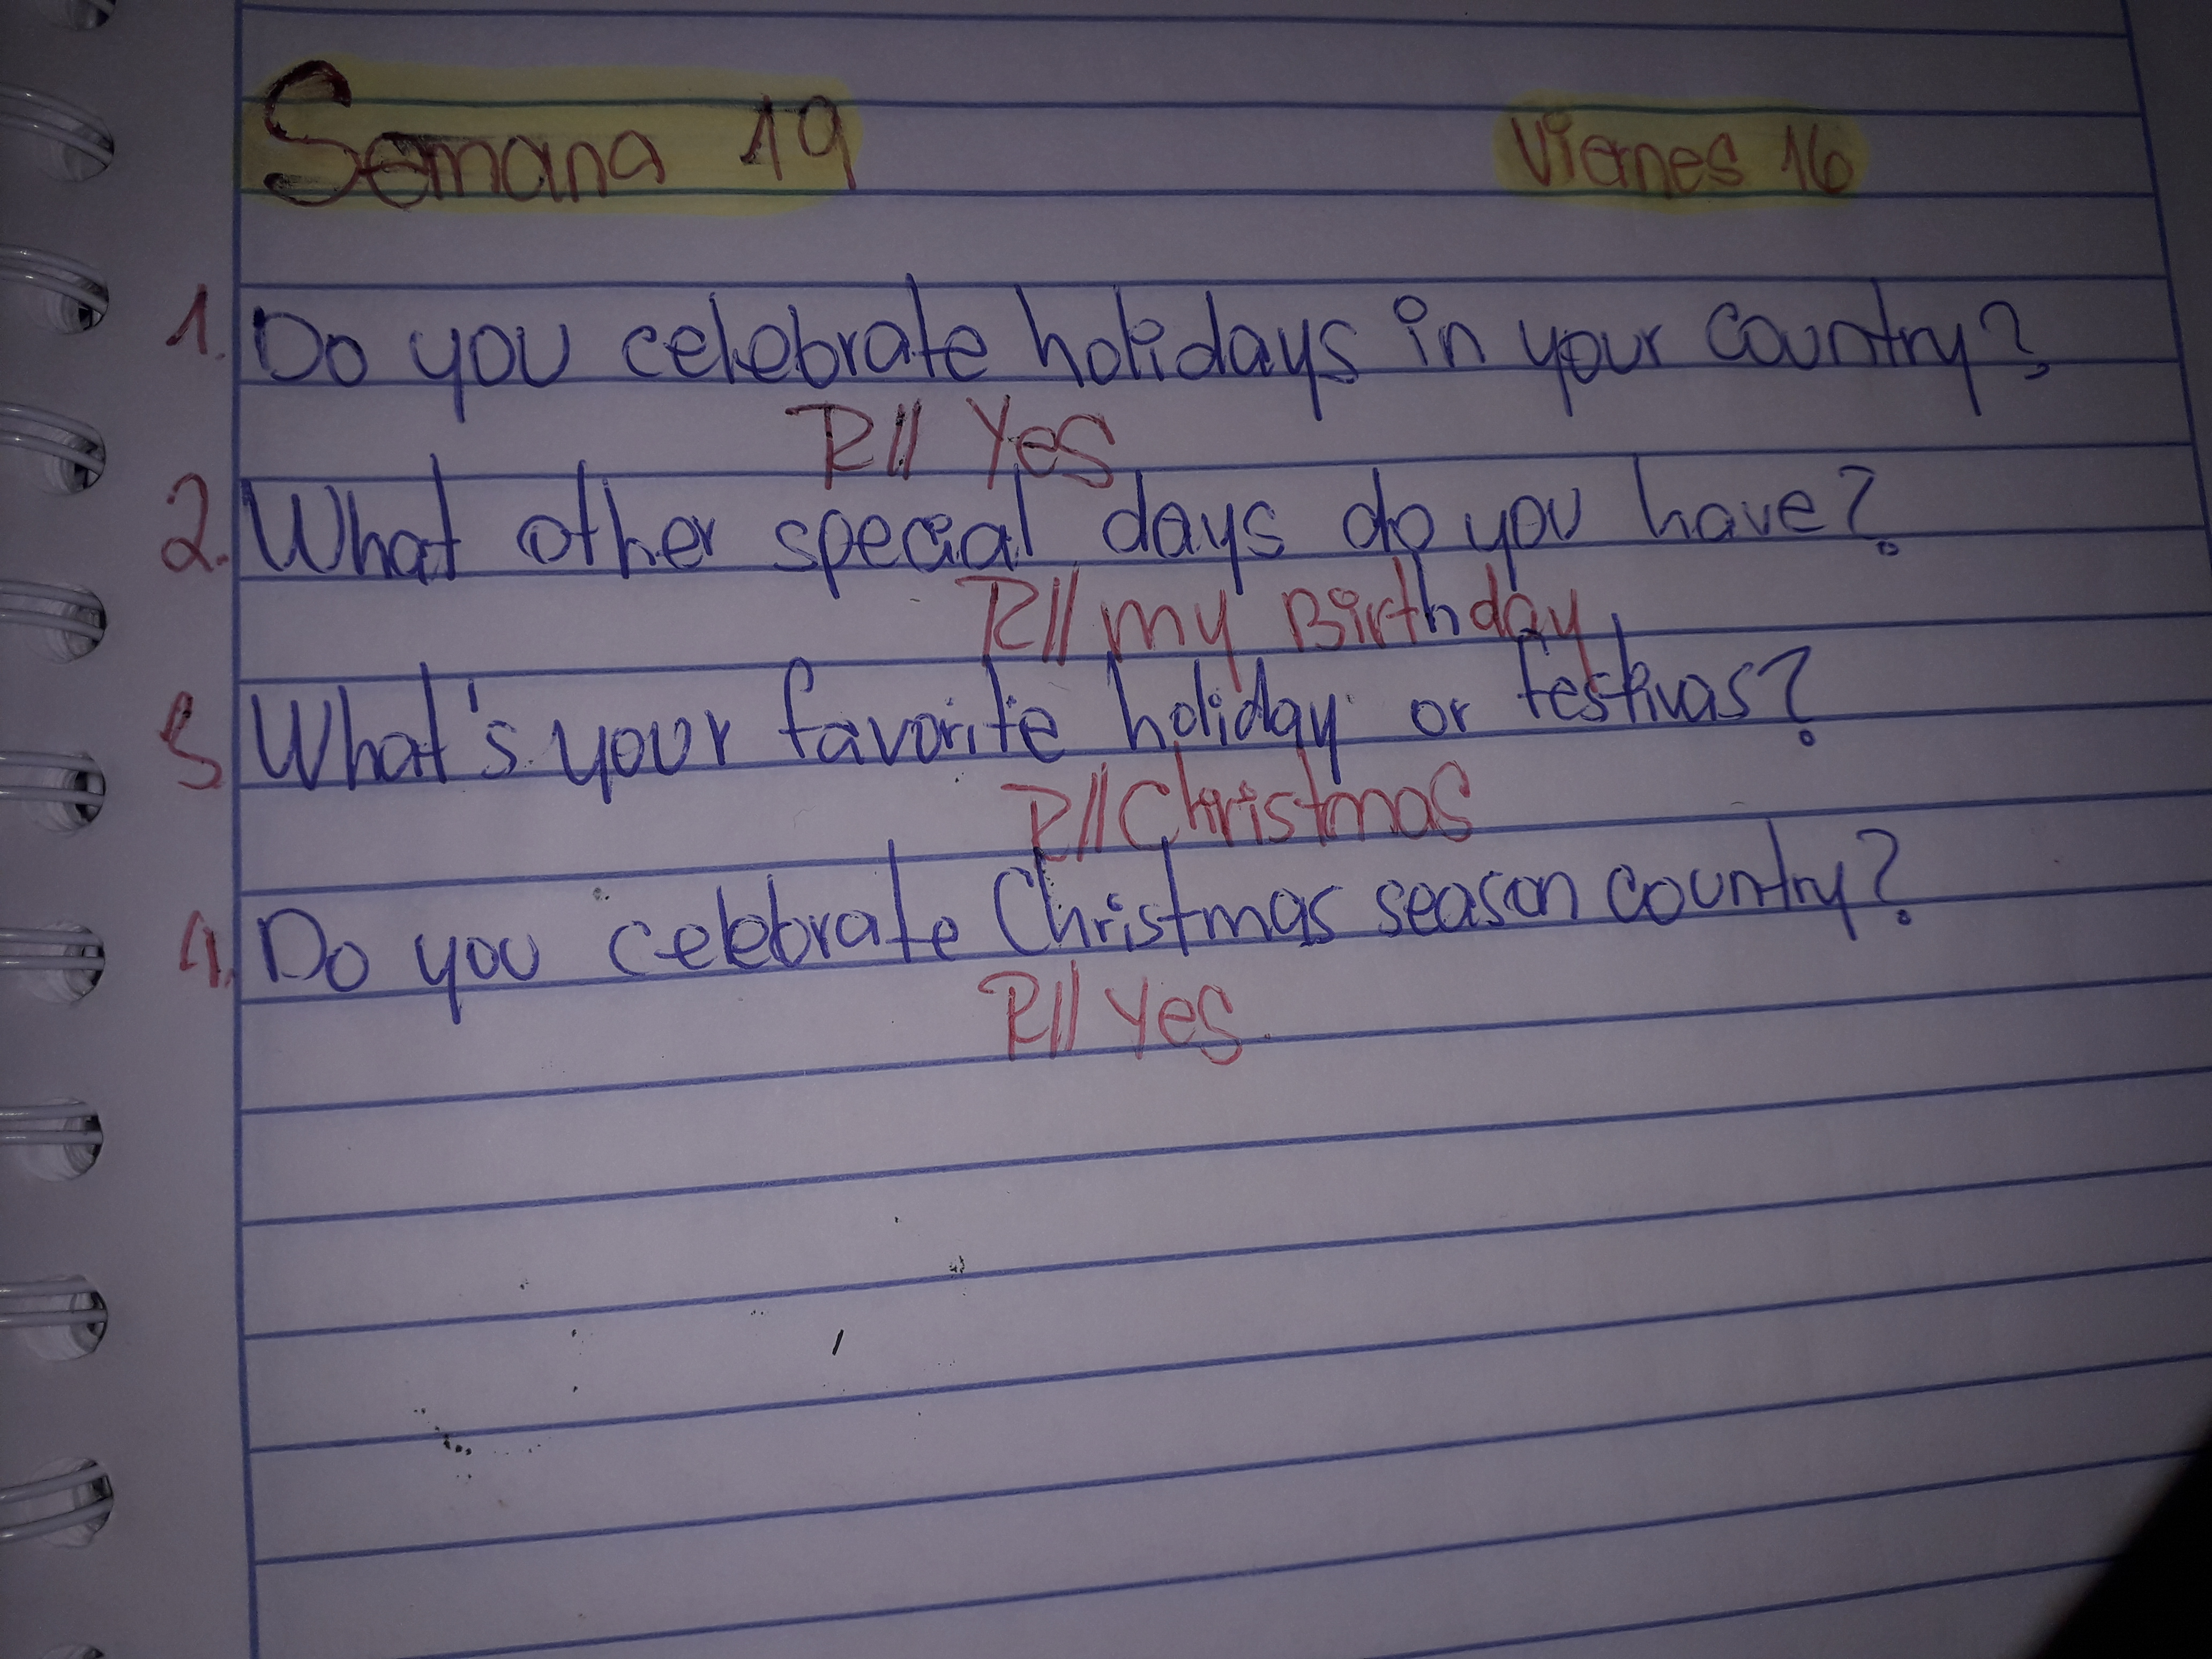 Semana 19 Viernes 16
1. Do you celebrate holidays in your country?
R// Yes
2. What other special days do you have?
R// my Birthday
3 What's your favorite holiday or festivas?
R// Christmas
4. Do you celebrate Christmas season country?
R// Yes.